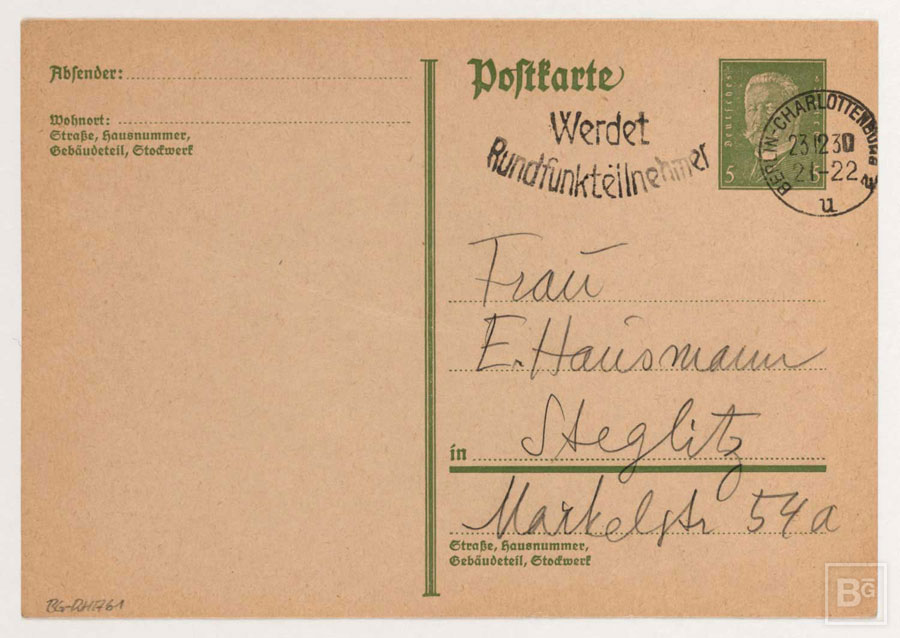 Absender:
Wohnort:
Straße, Hausnummer,
Gebäudeteil, Stockwerk
Postkarte
Werdet
Rundfunkteilnehmer
Deutsches
5
BERLIN-CHARLOTTENBURG 2
23.12.30
21-22
u
Frau
E. Hausmann
in Steglitz
Markelstr 54a
Straße, Hausnummer,
Gebäudeteil, Stockwerk
BG-RH1761
BG